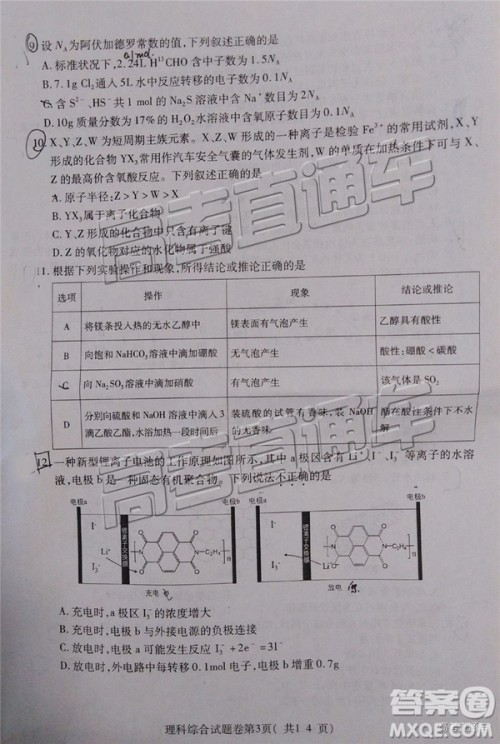 9.设 NA为阿伏加德罗常数的值,下列叙述正确的是
A.标准状况下,2.24L H¹³CHO 含中子数为 1.5NA
B.7.1g Cl₂通入 5L 水中反应转移的电子数为 0.1NA
C.含 S²⁻、HS⁻共 1 mol 的 Na₂S 溶液中含 Na⁺数目为 2NA
D.10g 质量分数为 17% 的 H₂O₂水溶液中含氢原子数目为 0.1NA
10.X、Y、Z、W 为短周期主族元素。X、Y、Z 形成的一种离子是检验 Fe³⁺的常用试剂,X、Y
形成的化合物 YX₃常用作汽车安全气囊的气体发生剂,W 的单质在加热条件下可与 X、
Z 的最高价含氧酸反应。下列叙述正确的是
A.原子半径:Z>Y>W>X
B.YX₃属于离子化合物
C.Y、Z 形成的化合物中只含有离子键
D.Z 的氧化物对应的水化物均为强酸
11.根据下列实验操作和现象,所得结论或推论正确的是
选项 操作 现象 结论或推论
A 将镁条投入热的无水乙醇中 镁表面有气泡产生 乙醇具有酸性
B 向饱和 NaHCO₃溶液中滴加硼酸 无气泡产生 酸性:硼酸<碳酸
C 向 Na₂SO₃溶液中滴加硝酸 有气泡产生 该气体是 SO₂
D 分别向硫酸和 NaOH 溶液中滴入 3 滴乙酸乙酯,水浴加热一段时间后 装硫酸的试管有香味,装 NaOH 的无香味 酯在酸性条件下不水解
12.一种新型锂离子电池的工作原理如图所示,其中 a 极区含有 Li⁺、I⁻、I₃⁻等离子的水溶
液,电极 b 是一种固态有机聚合物。下列说法不正确的是
电极a 电极b 电极a 电极b
I⁻ Li⁺ I₃⁻ 锂离子交换膜
充电
I⁻ Li⁺ I₃⁻ 锂离子交换膜
放电
A.充电时,a 极区 I₃⁻的浓度增大
B.充电时,电极 b 与外接电源的负极连接
C.放电时,电极 a 的电极反应为:I₃⁻+2e⁻=3I⁻
D.放电时,外电路中每转移 0.1mol 电子,电极 b 增重 0.7g
理科综合试题卷第3页( 共1 4 页)
高考直通车
高考直通车
答案圈